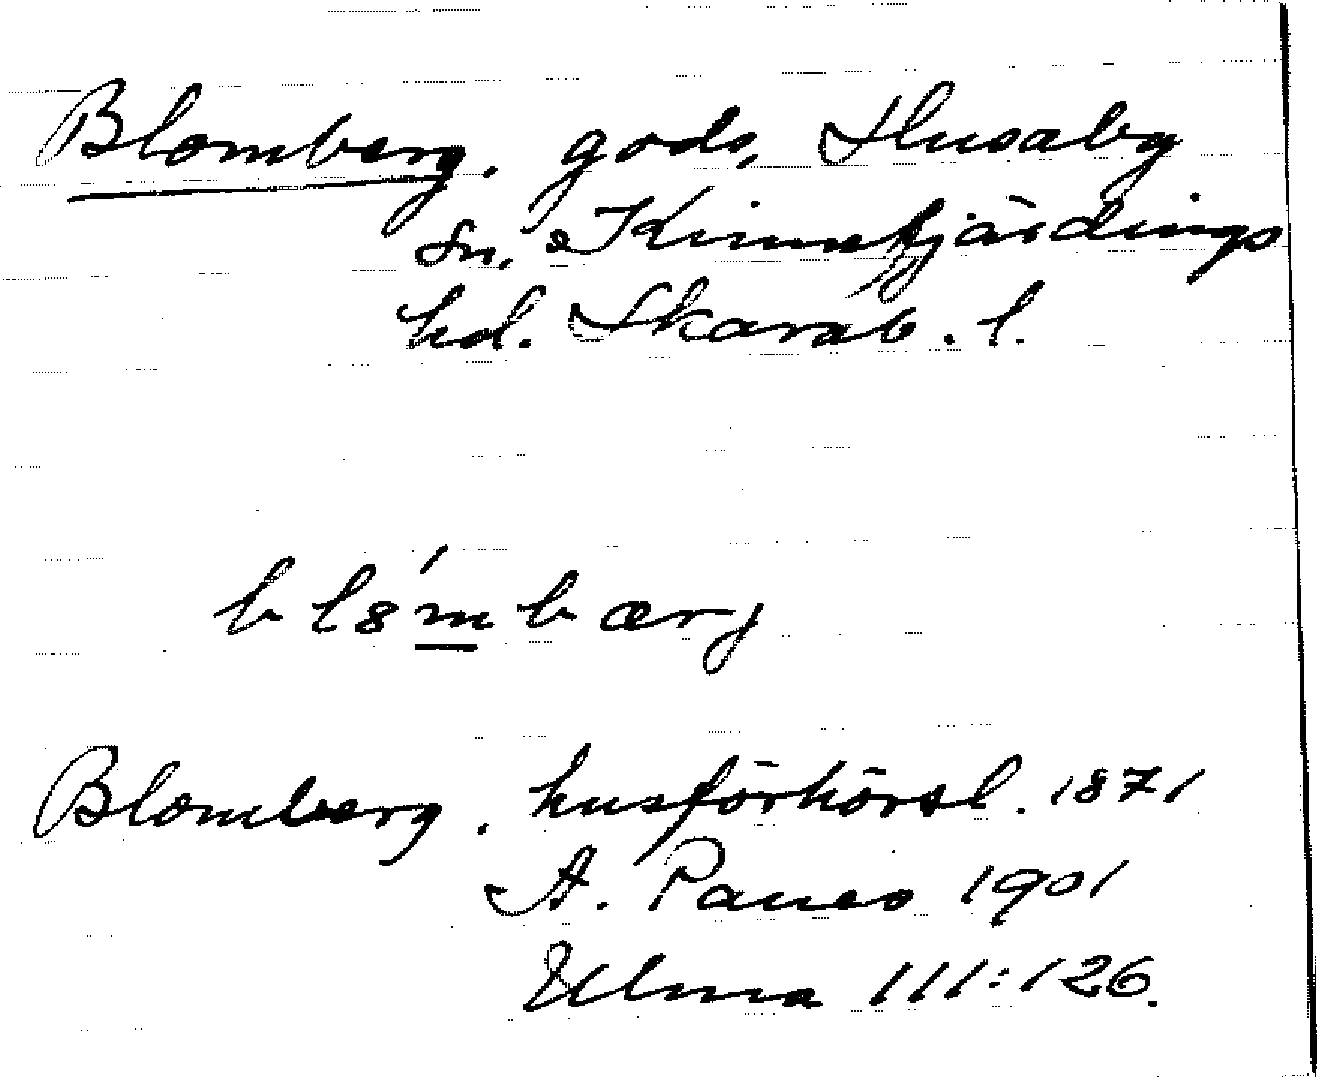 Blomberg, gods, Husaby
sn, Kinnefjärdings
hd. Skarab. l.
Blomberg. husförhörsl. 1871
A. Paues 1901
Ulma 111:126.